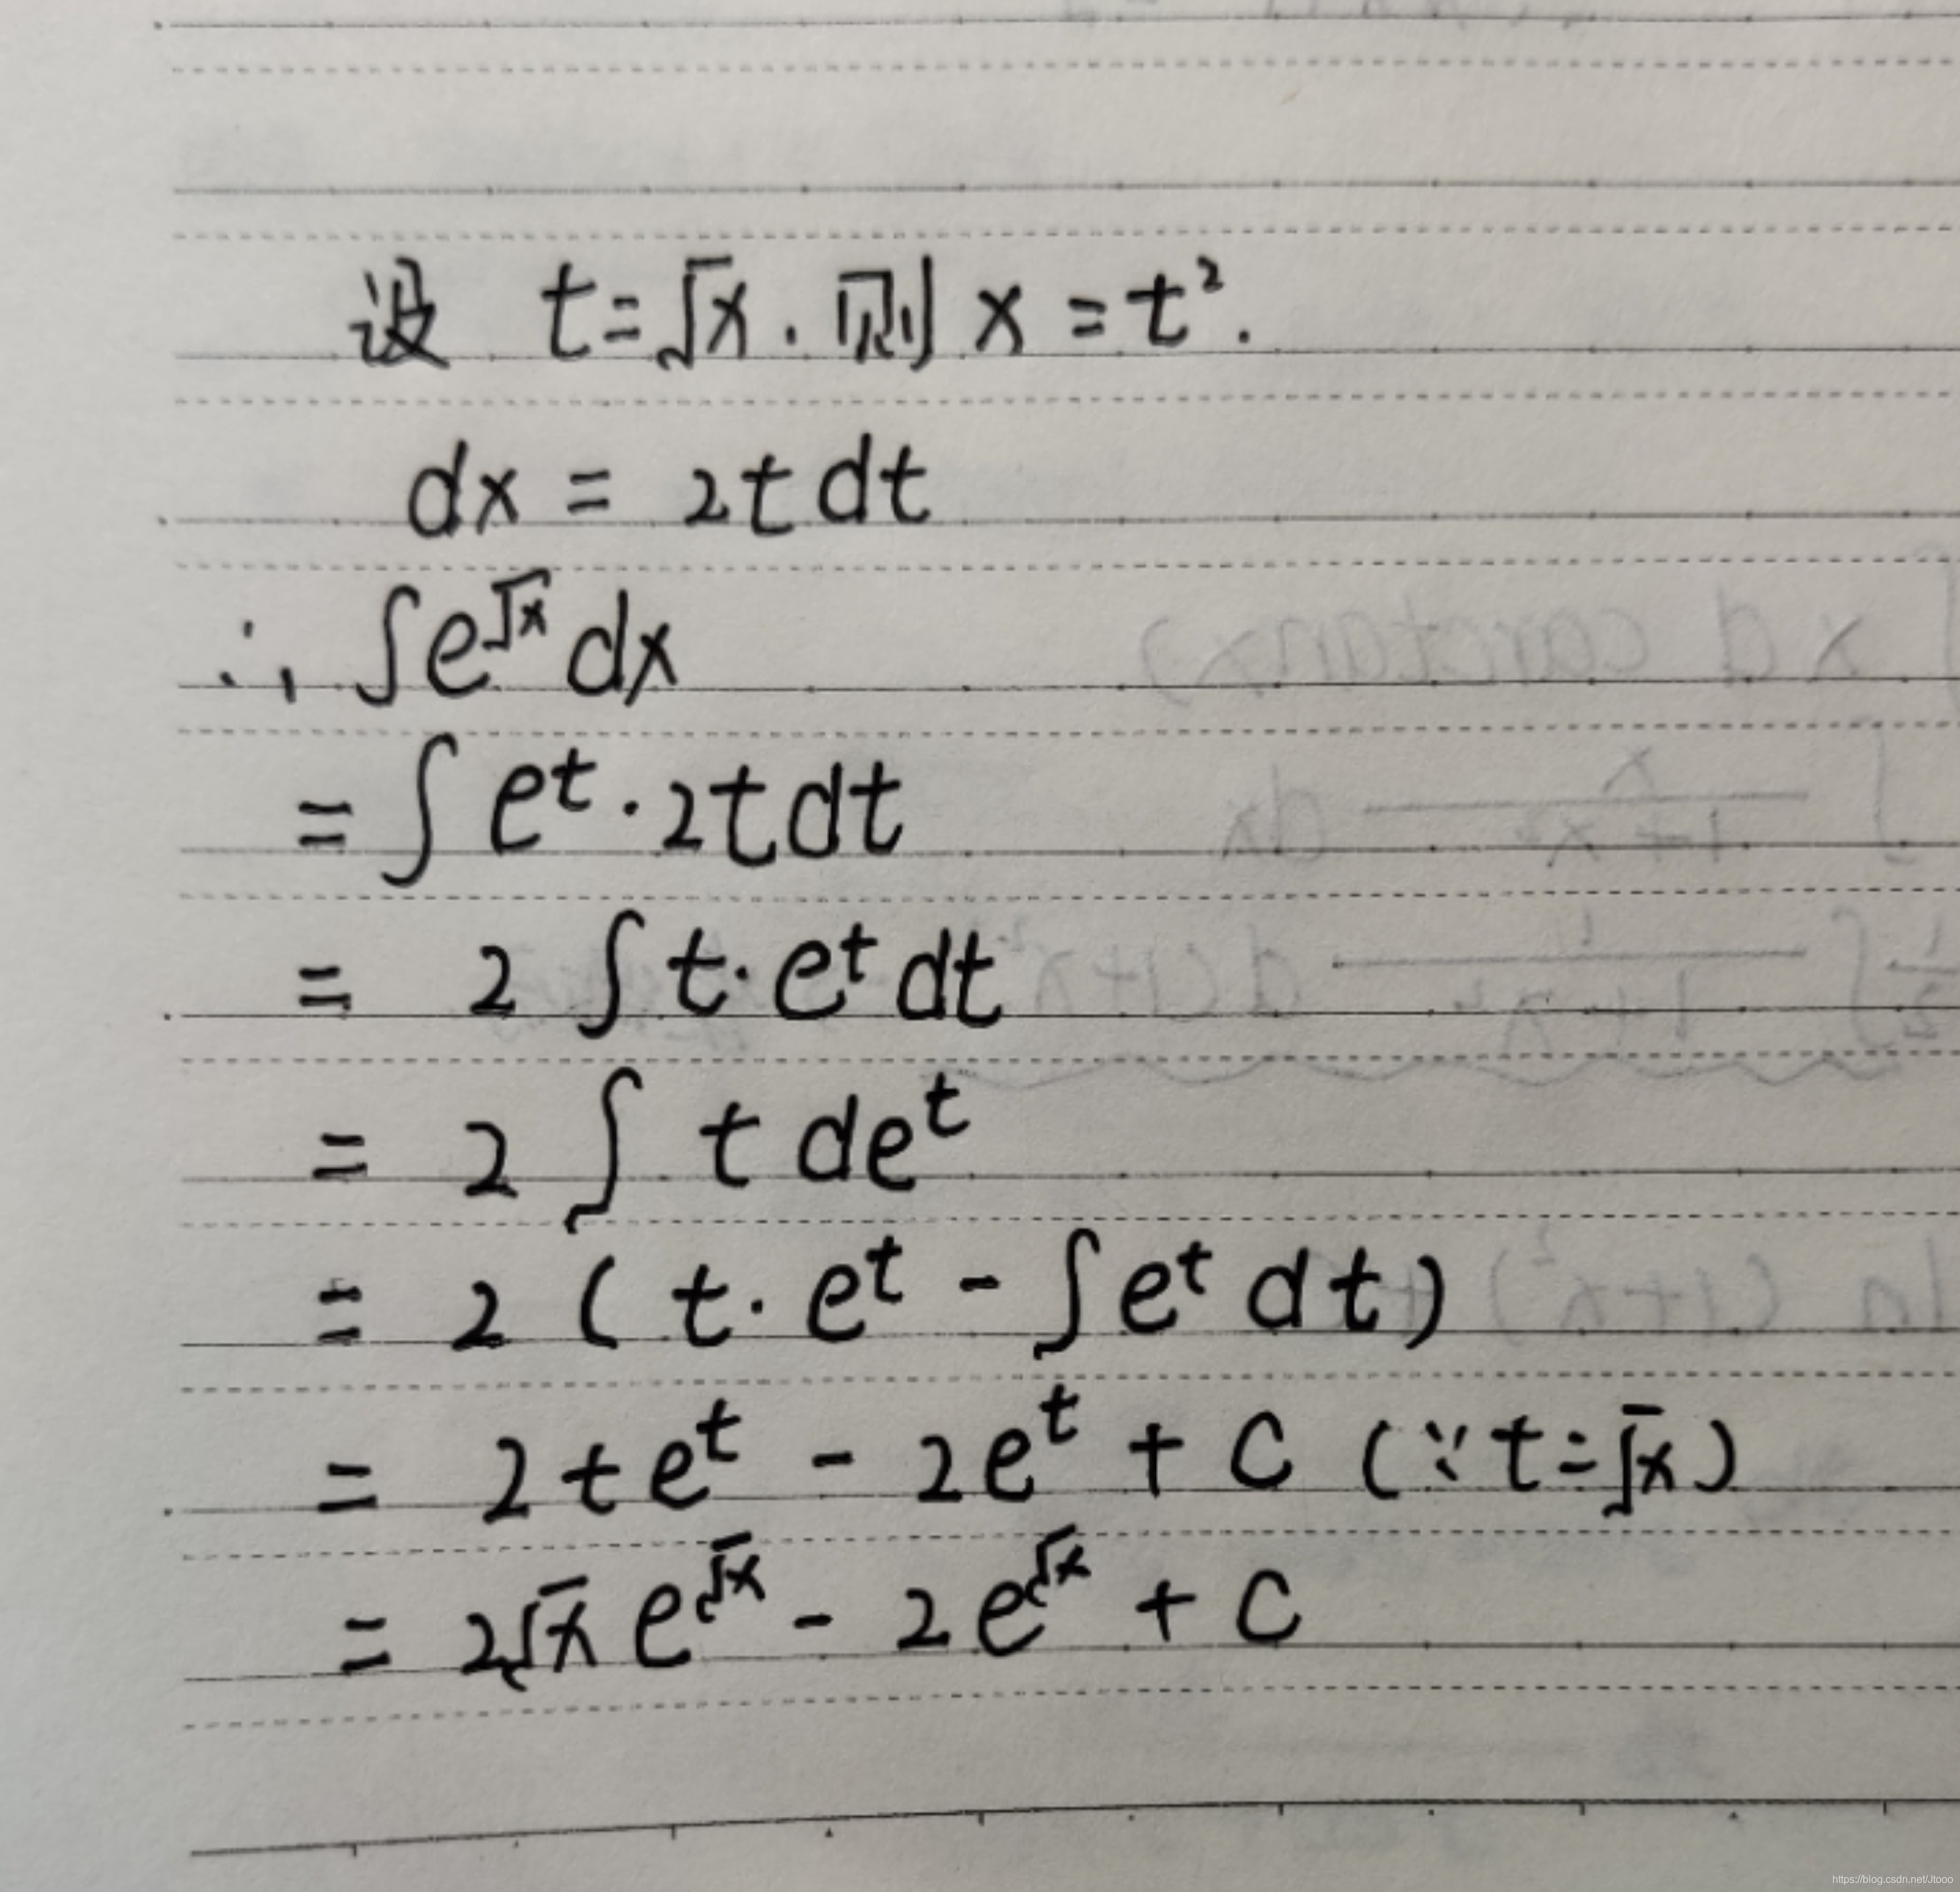 设 t=√x. 则 x=t².
dx = 2t dt
∴ ∫e^√x dx
= ∫ e^t · 2t dt
= 2 ∫ t · e^t dt
= 2 ∫ t de^t
= 2 ( t · e^t - ∫e^t dt )
= 2te^t - 2e^t + C (∵ t=√x)
= 2√x e^√x - 2e^√x + C
https://blog.csdn.net/Jtooo